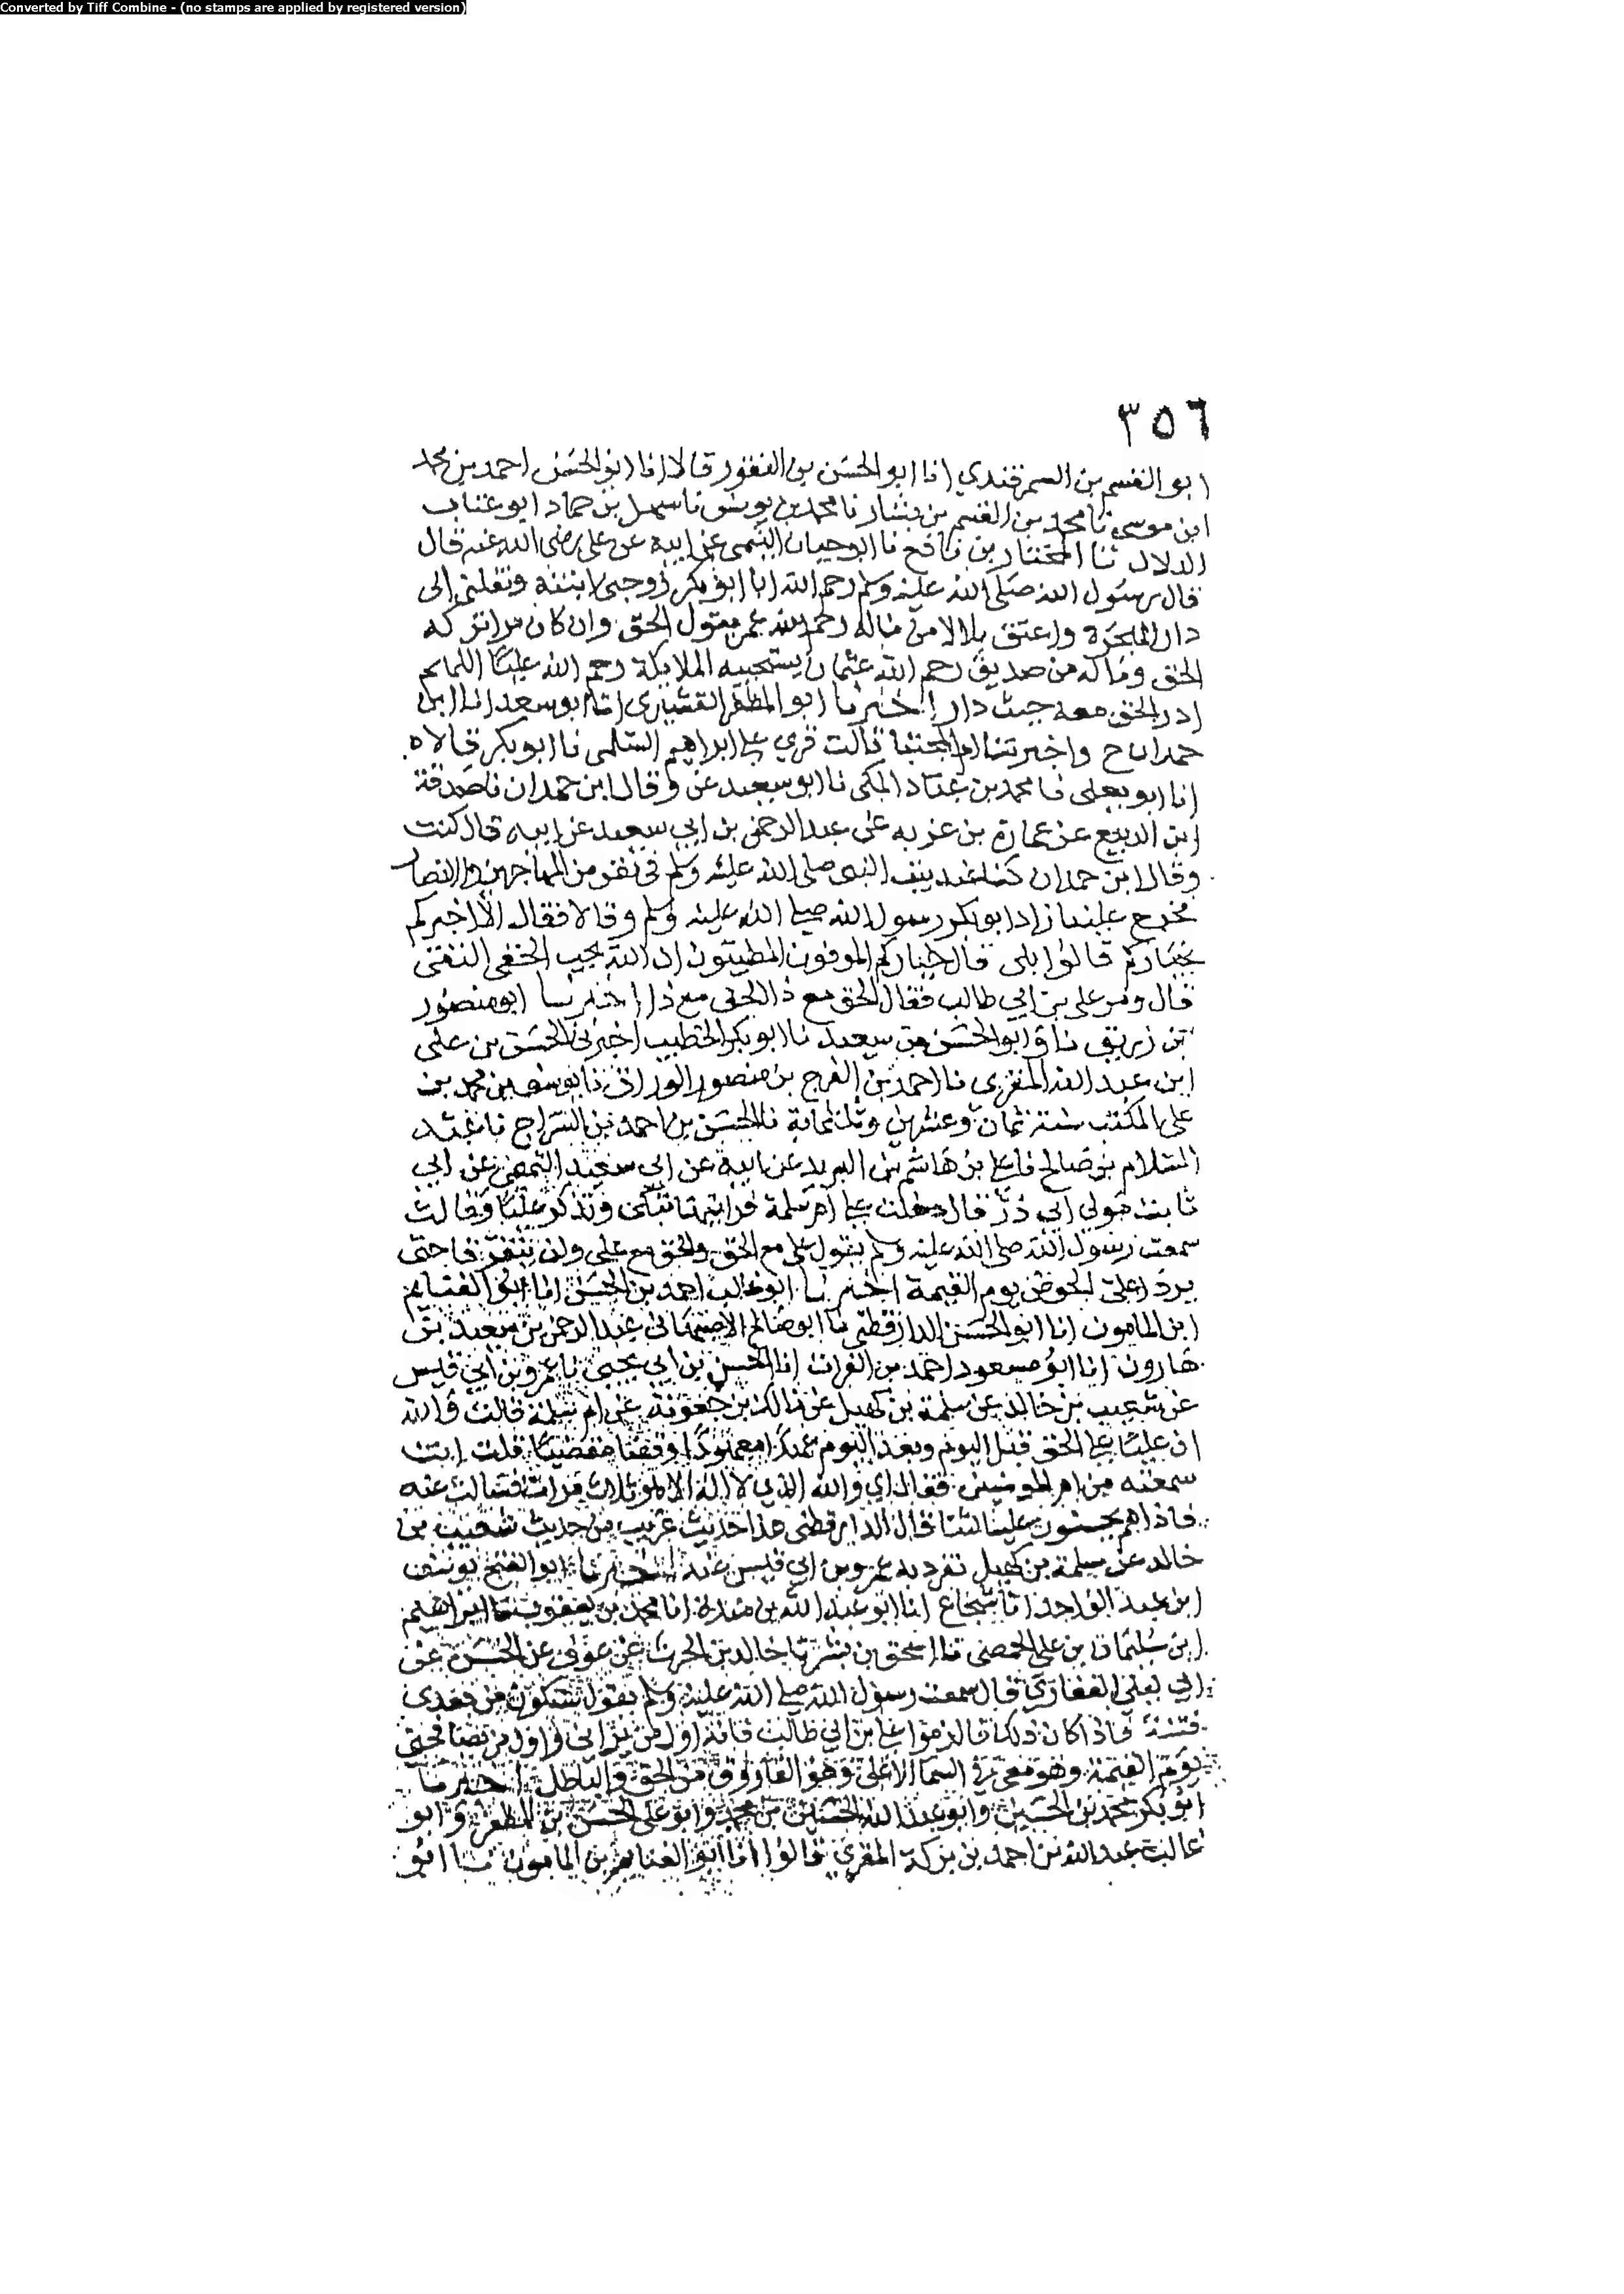 Converted by Tiff Combine - (no stamps are applied by registered version)
٣٥٦
ابو القسم بن السمرقندي انا ابو الحسن بن النقور قالا انا ابو الحسن احمد بن محمد
ابن موسى نا محمد بن القسم بن بشار نا محمد بن يونس نا سهل بن حماد ابو عتاب
الدلال نا المختار بن نافع نا ابو حيان التيمى عن ابيه عن على رضى الله عنه قال
قال رسول الله صلى الله عليه وسلم رحم الله ابا بكر زوجنى ابنته ونقلنى الى
دار الهجرة واعتق بلالا من ماله رحم الله عمر يقول الحق وان كان مرا تركه
الحق وماله من صديق رحم الله عثمان يستحييه الملايكة رحم الله عليا اللهم
ادر الحق معه حيث دار اخبرنا ابو المظفر القشيرى انا ابو سعد انا ابن
حمدان ح واخبرتنا ام المجتبا قالت قري على ابراهيم السلمى نا ابو بكر قالا
انا ابو يعلى نا محمد بن عباد المكى نا ابو سعيد عن وقال ابن حمدان نا صدقة
ابن الربيع عن عمارة بن غزيه عن عبد الرحمن بن ابي سعيد عن ابيه قال كنت
وقال ابن حمدان كنا عند بيت النبى صلى الله عليه وسلم فى نفر من المهاجرين والانصار
فخرج علينا زاد ابو بكر رسول الله صلى الله عليه وسلم وقالا فقال الا اخبركم
بخياركم قالوا بلى قال خياركم الموفون المطيبون ان الله يحب الخفى التقى
قال ومر على بن ابي طالب فقال الحق مع ذا الحق مع ذا اخبرنا ابو منصور
بن زريق نا و ابو الحسن بن سعيد نا ابو بكر الخطيب اخبرنى الحسن بن على
ابن عبد الله المقرى نا احمد بن الفرج بن منصور الوراق نا يوسف بن محمد بن
على المكتب سنة ثمان وعشرين وثلثماية نا الحسن بن احمد بن السراج نا عبد
السلام بن صالح نا على بن هاشم بن البريد عن ابيه عن ابى سعيد التميمى عن ابي
ثابت مولى ابي ذر قال دخلت على ام سلمة فرايتها تبكى وتذكر عليا وقالت
سمعت رسول الله صلى الله عليه وسلم يقول على مع الحق والحق مع على ولن يتفرقا حتى
يردا على الحوض يوم القيمة اخبرنا ابو غالب احمد بن الحسن انا ابو الغنايم
ابن المامون انا ابو الحسن الدارقطنى نا ابو صالح الاصبهانى عبد الرحمن بن سعيد بن
هارون انا ابو مسعود احمد بن الفرات انا الحسن بن ابي يحيى نا عمرو بن ابي قيس
عن شعيب بن خالد عن سلمة بن كهيل عن مالك بن جعونة عن ام سلمة قالت والله
ان عليا على الحق قبل اليوم وبعد اليوم عهدا معهودا وقضا مقضيا قلت انت
سمعته من ام المومنين فقال اي والله الذي لا اله الا هو ثلاث مرات فسالت عنه
فاذا هم يحسنون عليه الثنا قال الدارقطنى هذا حديث غريب من حديث شعيب بن
خالد عن سلمة بن كهيل تفرد به عمرو بن ابي قيس عنه اخبرنا ابو الفتح يوسف
ابن عبد الواحد انا شجاع انا ابو عبد الله بن منده انا محمد بن يعقوب نا ابراهيم
ابن سليمان بن على الحمصى نا اسحق بن بشر نا خالد بن الحرث عن عوف عن الحسن عن
ابي ليلى الغفارى قال سمعت رسول الله صلى الله عليه وسلم يقول ستكون من بعدى
فتنة فاذا كان ذلك فالزموا على بن ابي طالب فانه اول من يرانى واول من يصافحنى
يوم القيمة وهو معى فى السما الاعلى وهو الفاروق بين الحق والباطل اخبرنا
ابو بكر محمد بن الحسين وابو عبد الله الحسين بن محمد وابو على الحسن بن المظفر وابو
غالب عبد الله بن احمد بن بركة المقرى قالوا انا ابو الغنايم بن المامون نا ابو